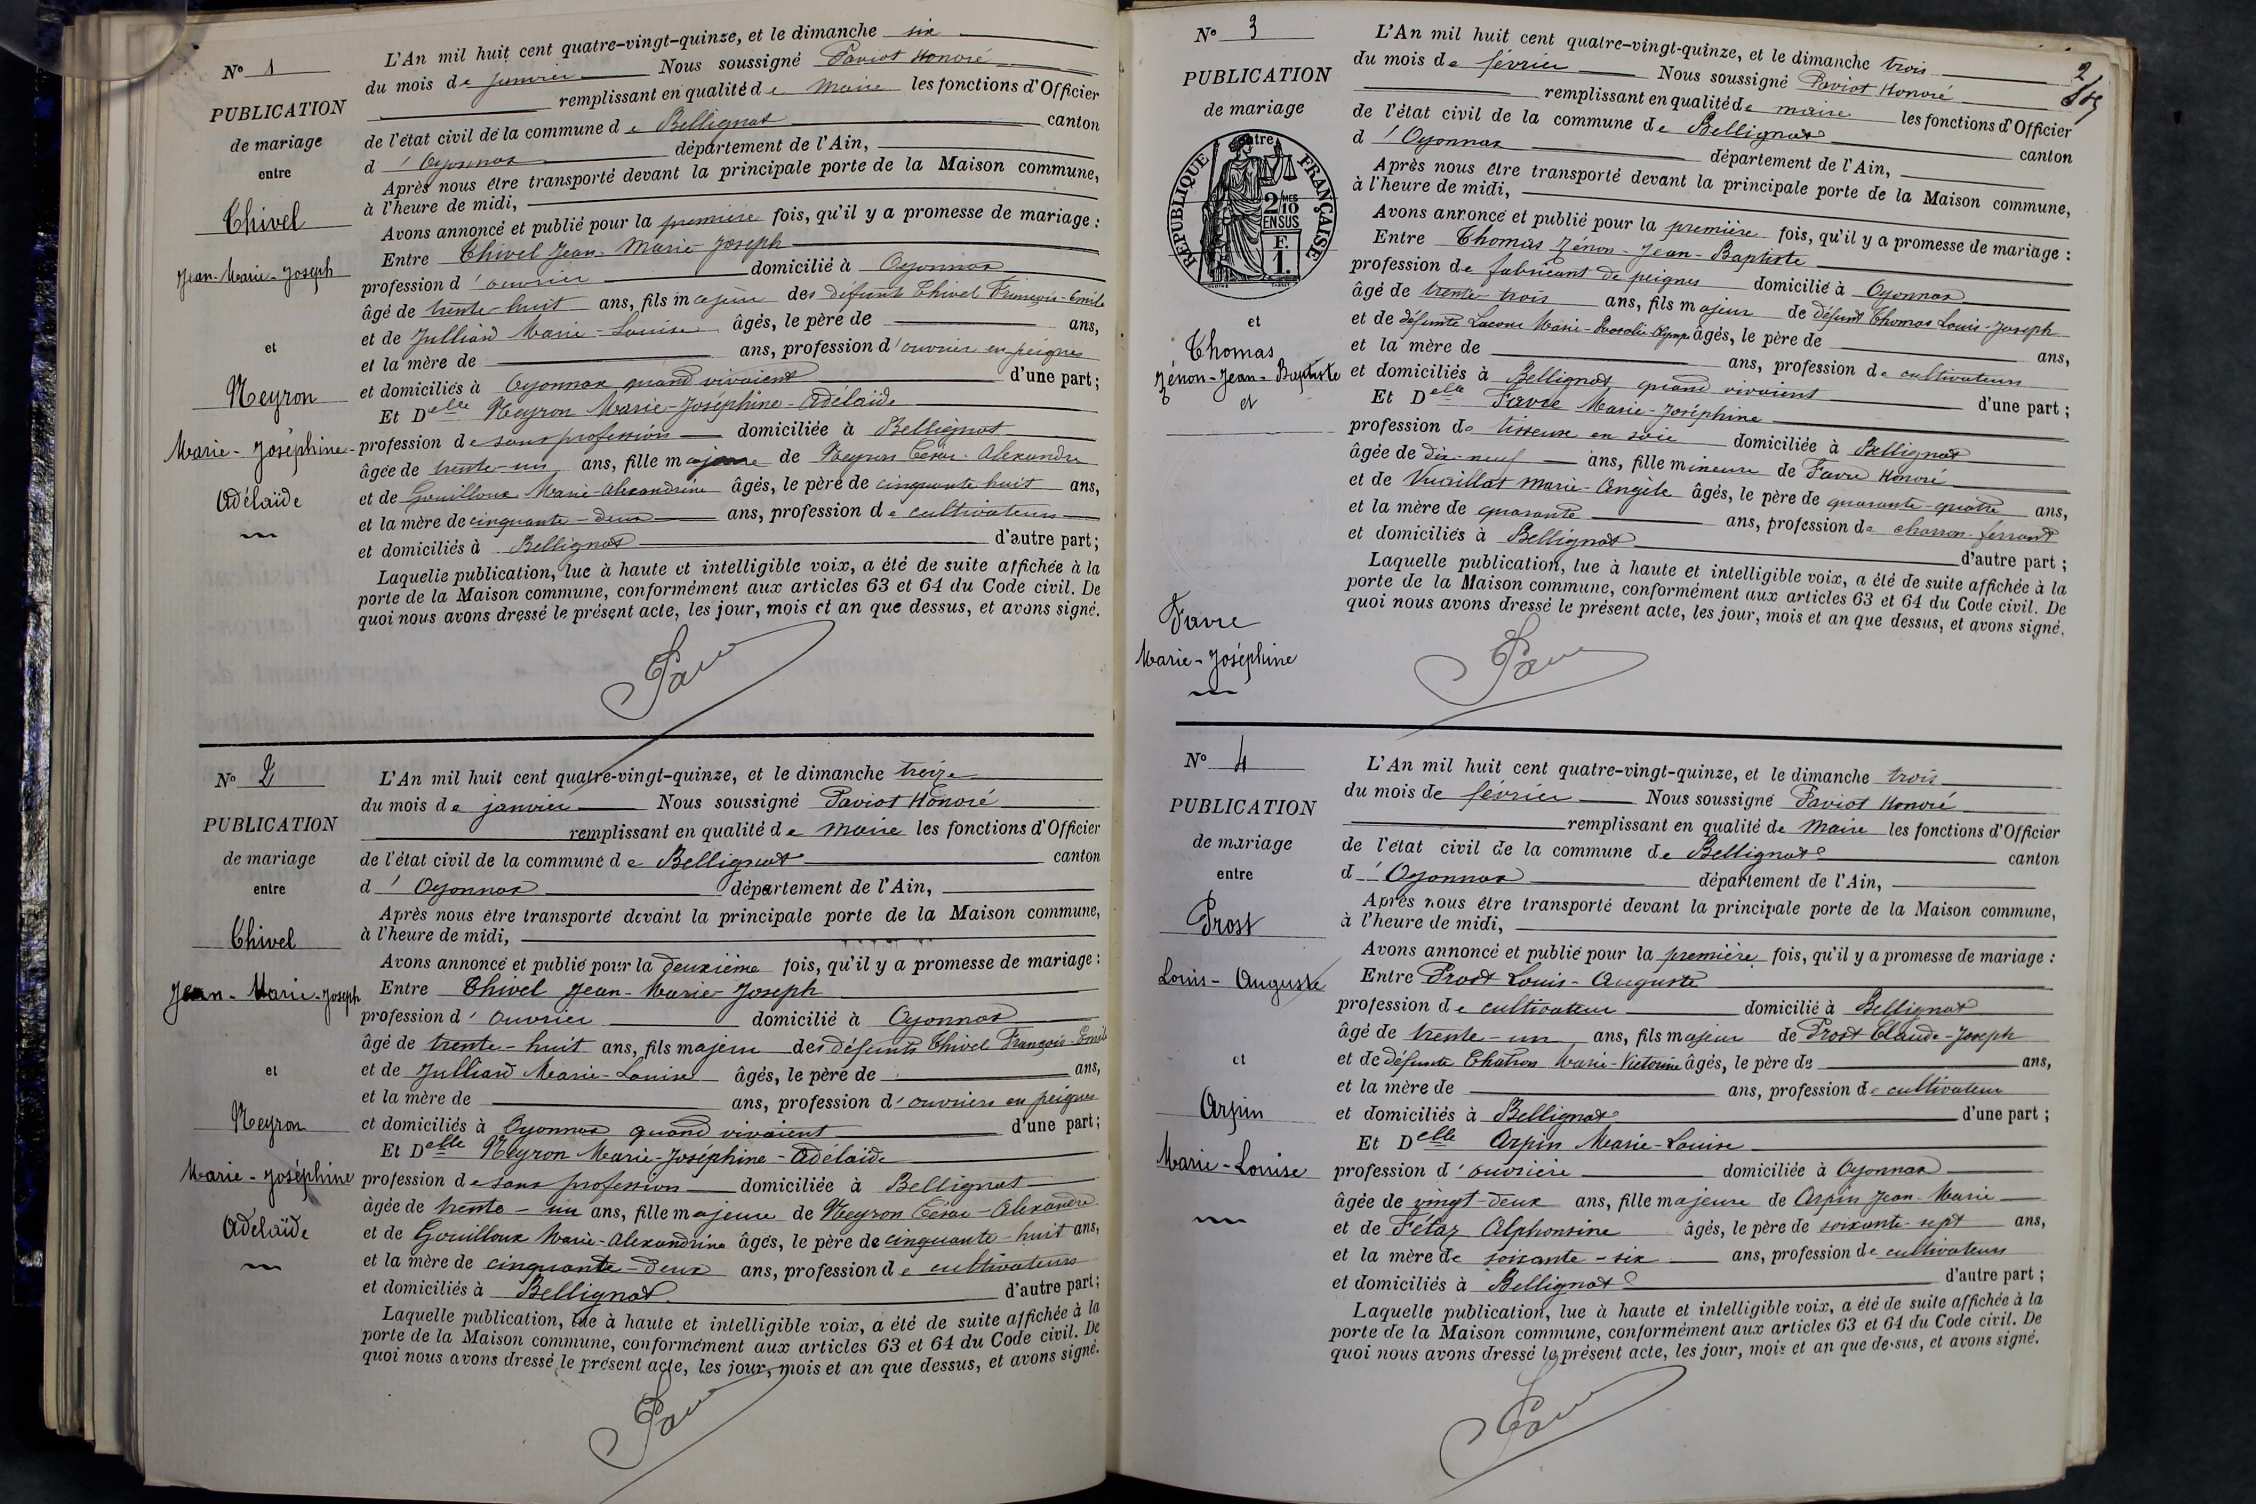 N° 1
PUBLICATION
de mariage
entre
Chivel
Jean-Marie-Joseph
et
Neyron
Marie-Joséphine-
Adélaïde
L'An mil huit cent quatre-vingt-quinze, et le dimanche six
du mois de janvier Nous soussigné Paviot Honoré
remplissant en qualité de Maire les fonctions d'Officier
de l'état civil de la commune de Bellignat canton
d'Oyonnax département de l'Ain,
Après nous être transporté devant la principale porte de la Maison commune,
à l'heure de midi,
Avons annoncé et publié pour la première fois, qu'il y a promesse de mariage :
Entre Chivel Jean-Marie-Joseph
profession d'ouvrier domicilié à Oyonnax
âgé de trente-huit ans, fils majeur des défunt Chivel François-Emile
et de Julliard Marie-Louise âgés, le père de ans,
et la mère de ans, profession d'ouvrier en peignes
et domiciliés à Oyonnax quand vivaient d'une part ;
Et Delle Neyron Marie-Joséphine-Adélaïde
profession de sans profession domiciliée à Bellignat
âgée de trente-un ans, fille majeure de Neyron César-Alexandre
et de Gouilloux Marie-Alexandrine âgés, le père de cinquante huit ans,
et la mère de cinquante-deux ans, profession de cultivateurs
et domiciliés à Bellignat d'autre part ;
Laquelle publication, lue à haute et intelligible voix, a été de suite affichée à la
porte de la Maison commune, conformément aux articles 63 et 64 du Code civil. De
quoi nous avons dressé le présent acte, les jour, mois et an que dessus, et avons signé.
N° 2
PUBLICATION
de mariage
entre
Chivel
Jean-Marie-Joseph
et
Neyron
Marie-Joséphine
Adélaïde
L'An mil huit cent quatre-vingt-quinze, et le dimanche treize
du mois de janvier Nous soussigné Paviot Honoré
remplissant en qualité de Maire les fonctions d'Officier
de l'état civil de la commune de Bellignat canton
d'Oyonnax département de l'Ain,
Après nous être transporté devant la principale porte de la Maison commune,
à l'heure de midi,
Avons annoncé et publié pour la deuxième fois, qu'il y a promesse de mariage :
Entre Chivel Jean-Marie-Joseph
profession d'ouvrier domicilié à Oyonnax
âgé de trente-huit ans, fils majeur des défunts Chivel François-Emile
et de Julliard Marie-Louise âgés, le père de ans,
et la mère de ans, profession d'ouvriers en peignes
et domiciliés à Oyonnax quand vivaient d'une part ;
Et Delle Neyron Marie-Joséphine-Adélaïde
profession de sans profession domiciliée à Bellignat
âgée de trente-un ans, fille majeure de Neyron César-Alexandre
et de Gouilloux Marie-Alexandrine âgés, le père de cinquante-huit ans,
et la mère de cinquante-deux ans, profession de cultivateurs
et domiciliés à Bellignat d'autre part ;
Laquelle publication, lue à haute et intelligible voix, a été de suite affichée à la
porte de la Maison commune, conformément aux articles 63 et 64 du Code civil. De
quoi nous avons dressé le présent acte, les jour, mois et an que dessus, et avons signé.
2
N° 3
PUBLICATION
de mariage
entre
RÉPUBLIQUE FRANÇAISE
2/10
MES
EN SUS
F.
1.
et
Thomas
Zénon-Jean-Baptiste
et
Favre
Marie-Joséphine
L'An mil huit cent quatre-vingt-quinze, et le dimanche trois
du mois de février Nous soussigné Paviot Honoré
remplissant en qualité de maire les fonctions d'Officier
de l'état civil de la commune de Bellignat canton
d'Oyonnax département de l'Ain,
Après nous être transporté devant la principale porte de la Maison commune,
à l'heure de midi,
Avons annoncé et publié pour la première fois, qu'il y a promesse de mariage :
Entre Thomas Zénon-Jean-Baptiste
profession de fabricant de peignes domicilié à Oyonnax
âgé de trente-trois ans, fils majeur de défunt Thomas Louis-Joseph
et de défunte Lacour Marie-Rosalie-Olympe âgés, le père de ans,
et la mère de ans, profession de cultivateurs
et domiciliés à Bellignat quand vivaient d'une part ;
Et Delle Favre Marie-Joséphine
profession de tisseuse en soie domiciliée à Bellignat
âgée de dix-neuf ans, fille mineure de Favre Honoré
et de Vuaillat Marie-Angèle âgés, le père de quarante-quatre ans,
et la mère de quarante ans, profession de charron-ferrant
et domiciliés à Bellignat d'autre part ;
Laquelle publication, lue à haute et intelligible voix, a été de suite affichée à la
porte de la Maison commune, conformément aux articles 63 et 64 du Code civil. De
quoi nous avons dressé le présent acte, les jour, mois et an que dessus, et avons signé.
N° 4
PUBLICATION
de mariage
entre
Prost
Louis-Auguste
et
Arpin
Marie-Louise
L'An mil huit cent quatre-vingt-quinze, et le dimanche trois
du mois de février Nous soussigné Paviot Honoré
remplissant en qualité de Maire les fonctions d'Officier
de l'état civil de la commune de Bellignat canton
d'Oyonnax département de l'Ain,
Après nous être transporté devant la principale porte de la Maison commune,
à l'heure de midi,
Avons annoncé et publié pour la première fois, qu'il y a promesse de mariage :
Entre Prost Louis-Auguste
profession de cultivateur domicilié à Bellignat
âgé de trente-un ans, fils majeur de Prost Claude-Joseph
et de défunte Chatron Marie-Victorine âgés, le père de ans,
et la mère de ans, profession de cultivateur
et domiciliés à Bellignat d'une part ;
Et Delle Arpin Marie-Louise
profession d'ouvrière domiciliée à Oyonnax
âgée de vingt-deux ans, fille majeure de Arpin Jean-Marie
et de Fétaz Alphonsine âgés, le père de soixante-sept ans,
et la mère de soixante-six ans, profession de cultivateurs
et domiciliés à Bellignat d'autre part ;
Laquelle publication, lue à haute et intelligible voix, a été de suite affichée à la
porte de la Maison commune, conformément aux articles 63 et 64 du Code civil. De
quoi nous avons dressé le présent acte, les jour, mois et an que dessus, et avons signé.